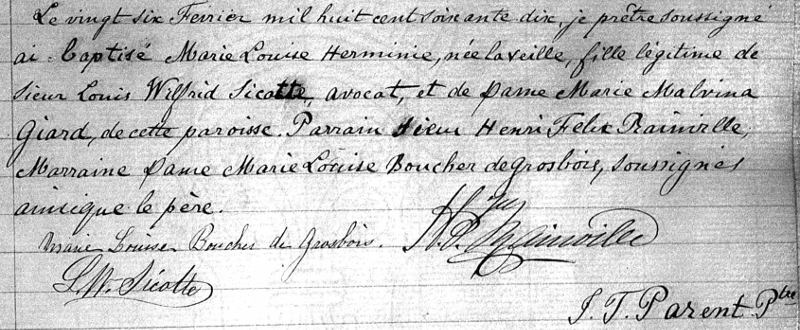 Le vingt six Fevrier mil huit cent soixante dix, je prêtre soussigné
ai baptisé Marie Louise Herminie, née la veille, fille légitime de
Sieur Louis Wilfrid Sicotte, avocat, et de Dame Marie Malvina
Giard, de cette paroisse. Parrain Sieur Henri Felix Rainville,
Marraine Dame Marie Louise Boucher de Grosbois, soussignés
ainsi que le père.
Marie Louise Boucher de Grosbois. H. F. Rainville
L. W. Sicotte
J. T. Parent Ptre